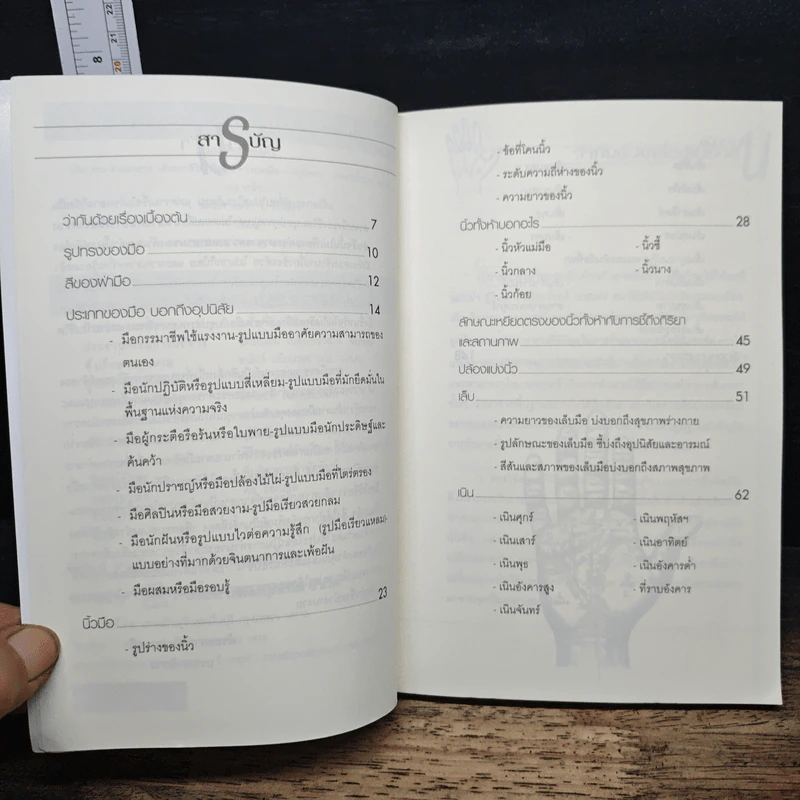 สารบัญ
ว่ากันด้วยเรื่องเบื้องต้น 7
รูปทรงของมือ 10
สีของฝ่ามือ 12
ประเภทของมือ บอกถึงอุปนิสัย 14
- มือกรรมาชีพใช้แรงงาน-รูปแบบมืออาศัยความสามารถของ
ตนเอง
- มือนักปฏิบัติหรือรูปแบบสี่เหลี่ยม-รูปแบบมือที่มักยึดมั่นใน
พื้นฐานแห่งความจริง
- มือผู้กระตือรือร้นหรือใบพาย-รูปแบบมือนักประดิษฐ์และ
ค้นคว้า
- มือนักปราชญ์หรือมือปล้องไม้ไผ่-รูปแบบมือที่ไตร่ตรอง
- มือศิลปินหรือมือสวยงาม-รูปมือเรียวสวยกลม
- มือนักฝันหรือรูปแบบไวต่อความรู้สึก (รูปมือเรียวแหลม)-
แบบอย่างที่มากด้วยจินตนาการและเพ้อฝัน
- มือผสมหรือมือรอบรู้
นิ้วมือ 23
- รูปร่างของนิ้ว
- ข้อที่โคนนิ้ว
- ระดับความถี่ห่างของนิ้ว
- ความยาวของนิ้ว
นิ้วทั้งห้าบอกอะไร 28
- นิ้วหัวแม่มือ - นิ้วชี้
- นิ้วกลาง - นิ้วนาง
- นิ้วก้อย
ลักษณะเหยียดตรงของนิ้วทั้งห้ากับการชี้ถึงกิริยา
และสถานภาพ 45
ปล้องแบ่งนิ้ว 49
เล็บ 51
- ความยาวของเล็บมือ บ่งบอกถึงสุขภาพร่างกาย
- รูปลักษณะของเล็บมือ ชี้บ่งถึงอุปนิสัยและอารมณ์
- สีสันและสภาพของเล็บมือบ่งบอกถึงสภาพสุขภาพ
เนิน 62
- เนินศุกร์ - เนินพฤหัสฯ
- เนินเสาร์ - เนินอาทิตย์
- เนินพุธ - เนินอังคารต่ำ
- เนินอังคารสูง - ที่ราบอังคาร
- เนินจันทร์
8
22
21
20